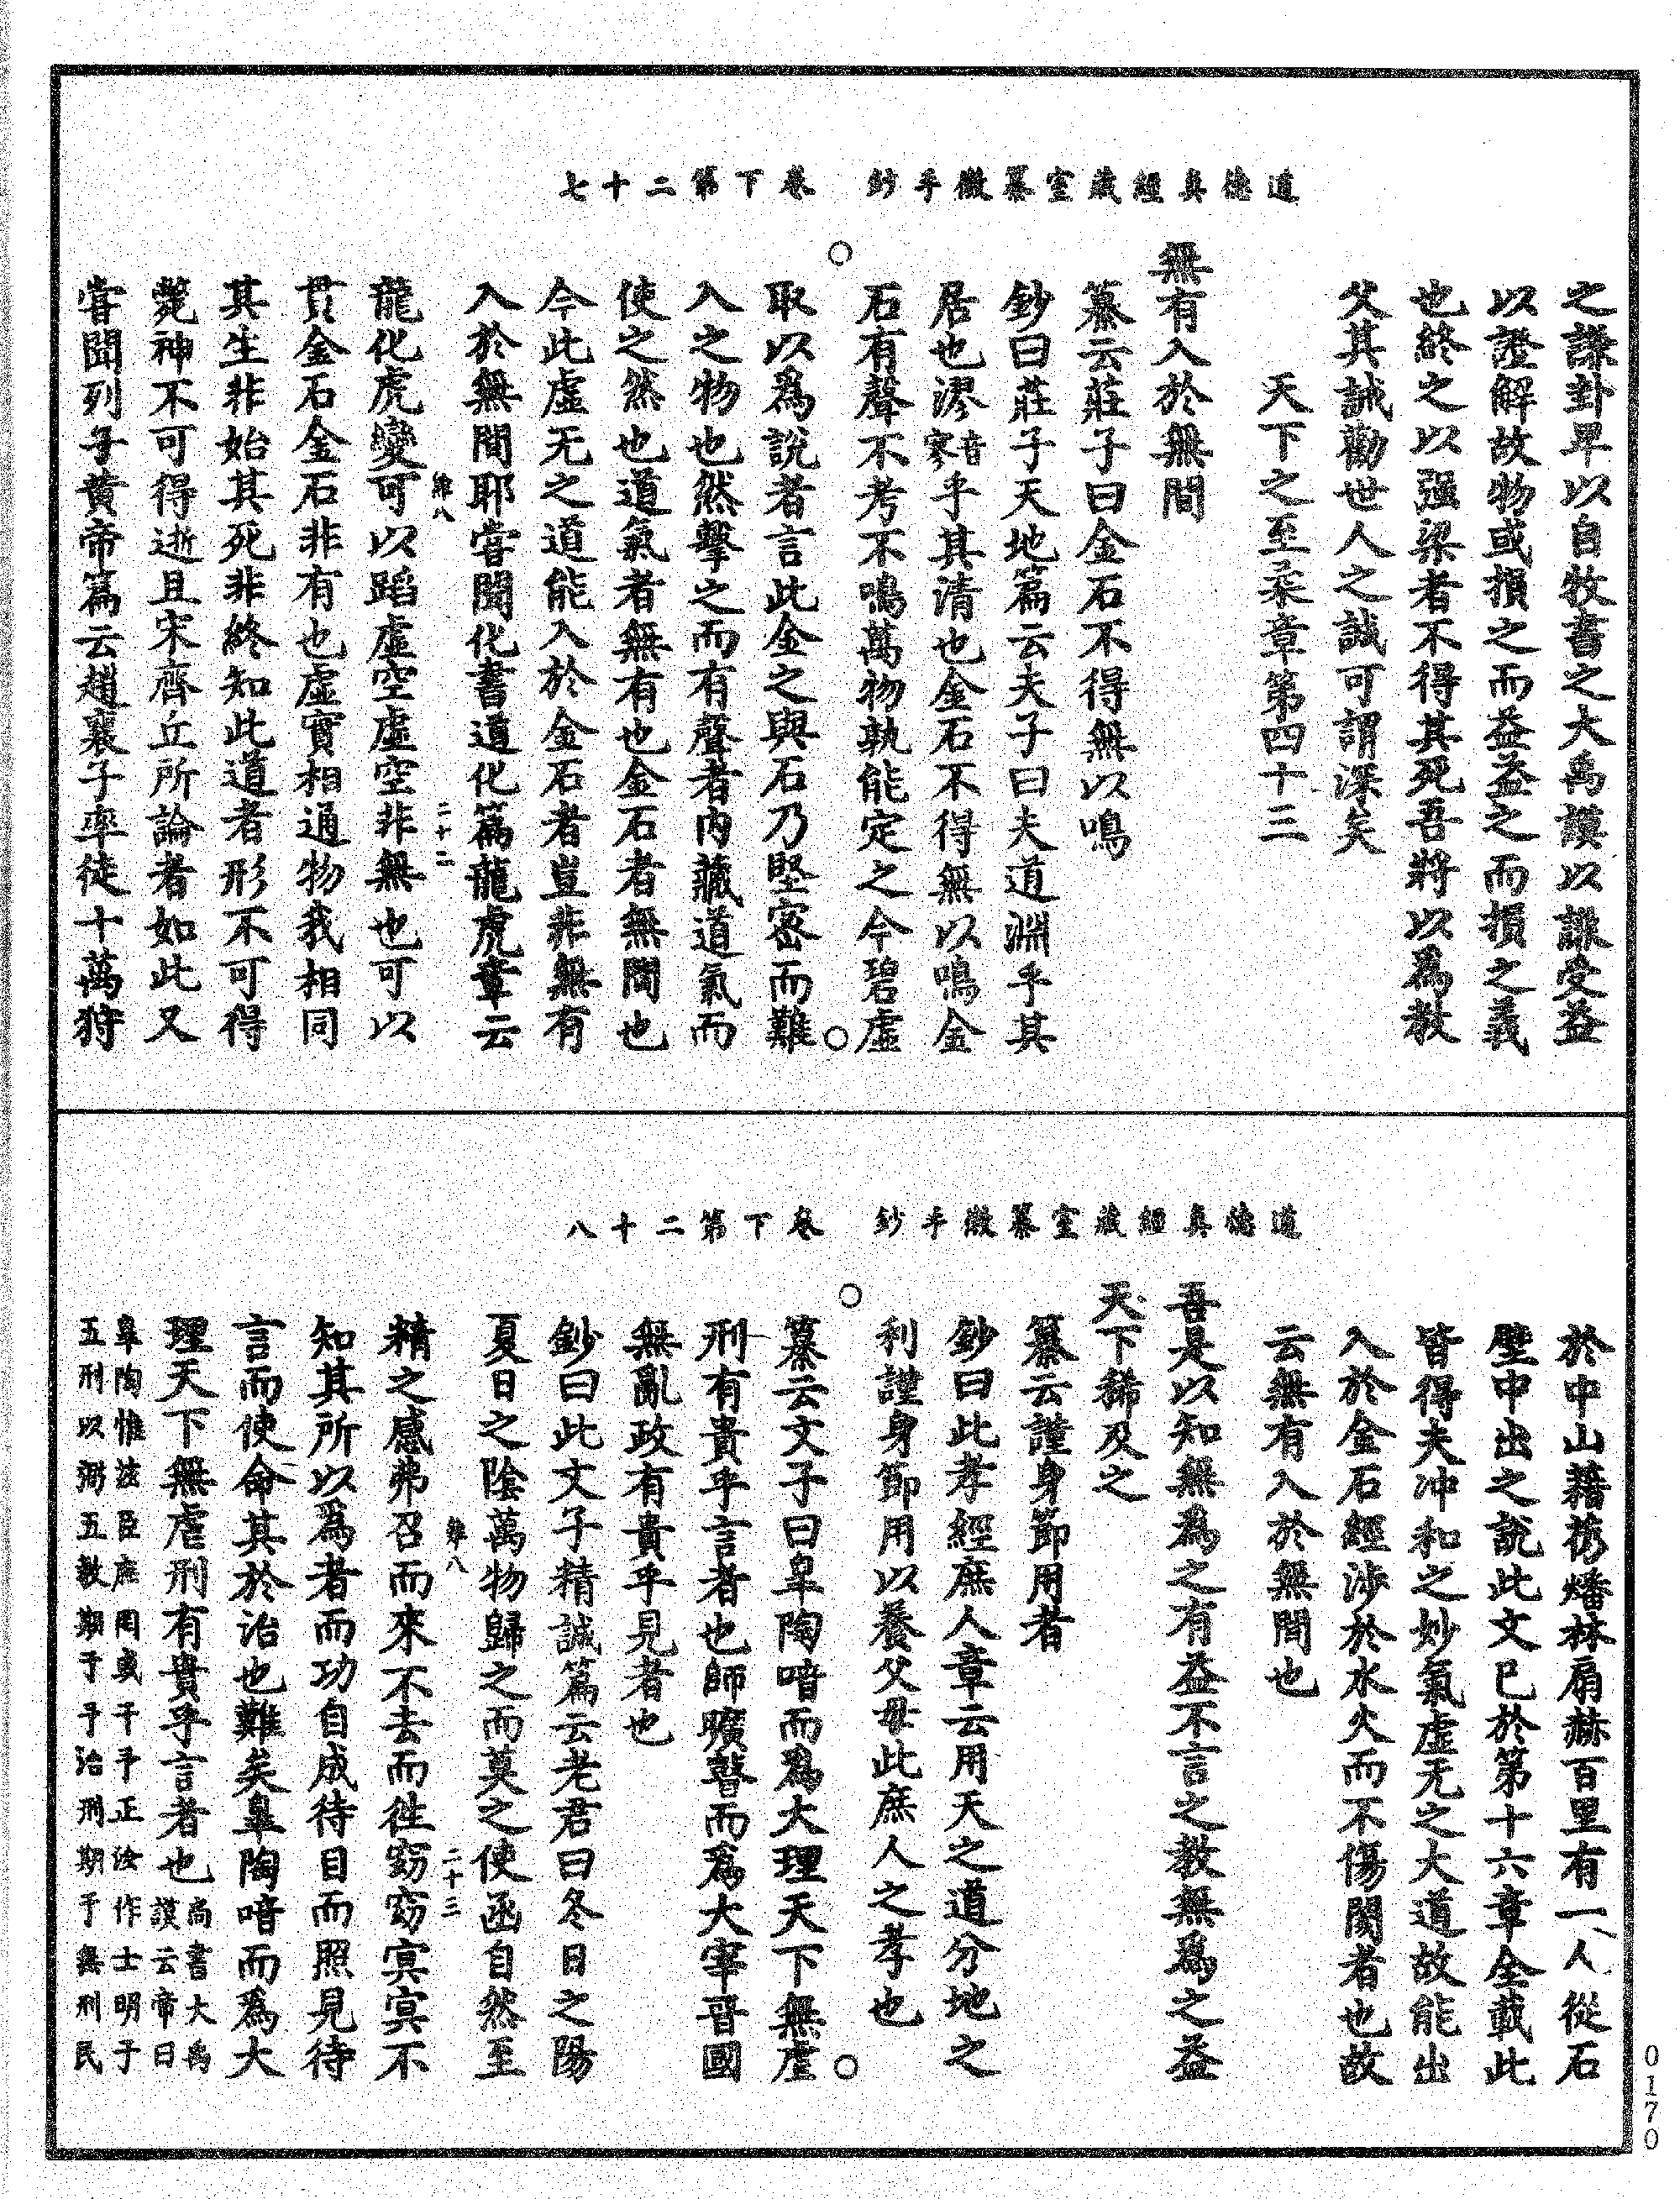 道德真經藏室纂微手鈔　卷下第二十七
之謙卦早以自牧書之大禹謨以謙受益
以證解故物或損之而益益之而損之義
也終之以强梁者不得其死吾將以爲教
父其誡勸世人之誠可謂深矣
天下之至柔章第四十三
無有入於無間
纂云莊子曰金石不得無以鳴
鈔曰莊子天地篇云夫子曰夫道淵乎其
居也漻音寥乎其清也金石不得無以鳴金
石有聲不考不鳴萬物孰能定之今碧虛
取以爲說者言此金之與石乃堅密而難
入之物也然擊之而有聲者內藏道氣而
使之然也道氣者無有也金石者無間也
今此虛无之道能入於金石者豈非無有
入於無間耶嘗聞化書道化篇龍虎章云
難八　二十二
龍化虎變可以蹈虛空虛空非無也可以
貫金石金石非有也虛實相通物我相同
其生非始其死非終知此道者形不可得
斃神不可得逝且宋齊丘所論者如此又
嘗聞列子黃帝篇云趙襄子率徒十萬狩
道德真經藏室纂微手鈔　卷下第二十八
於中山藉芿燔林扇赫百里有一人從石
壁中出之說此文已於第十六章全載此
皆得夫冲和之妙氣虛无之大道故能出
入於金石經涉於水火而不傷閡者也故
云無有入於無間也
吾是以知無爲之有益不言之教無爲之益
天下稀及之
纂云謹身節用者
鈔曰此孝經庶人章云用天之道分地之
利謹身節用以養父母此庶人之孝也
纂云文子曰皐陶喑而爲大理天下無虐
刑有貴乎言者也師曠瞽而爲大宰晉國
無亂政有貴乎見者也
鈔曰此文子精誠篇云老君曰冬日之陽
夏日之陰萬物歸之而莫之使函自然至
難八　二十三
精之感弗召而來不去而徃窈窈冥冥不
知其所以爲者而功自成待目而照見待
言而使命其於治也難矣皐陶喑而爲大
理天下無虐刑有貴乎言者也尚書大禹謨云帝曰
皐陶惟茲臣庶罔或干予正汝作士明于
五刑以弼五教期于予治刑期于無刑民
0170